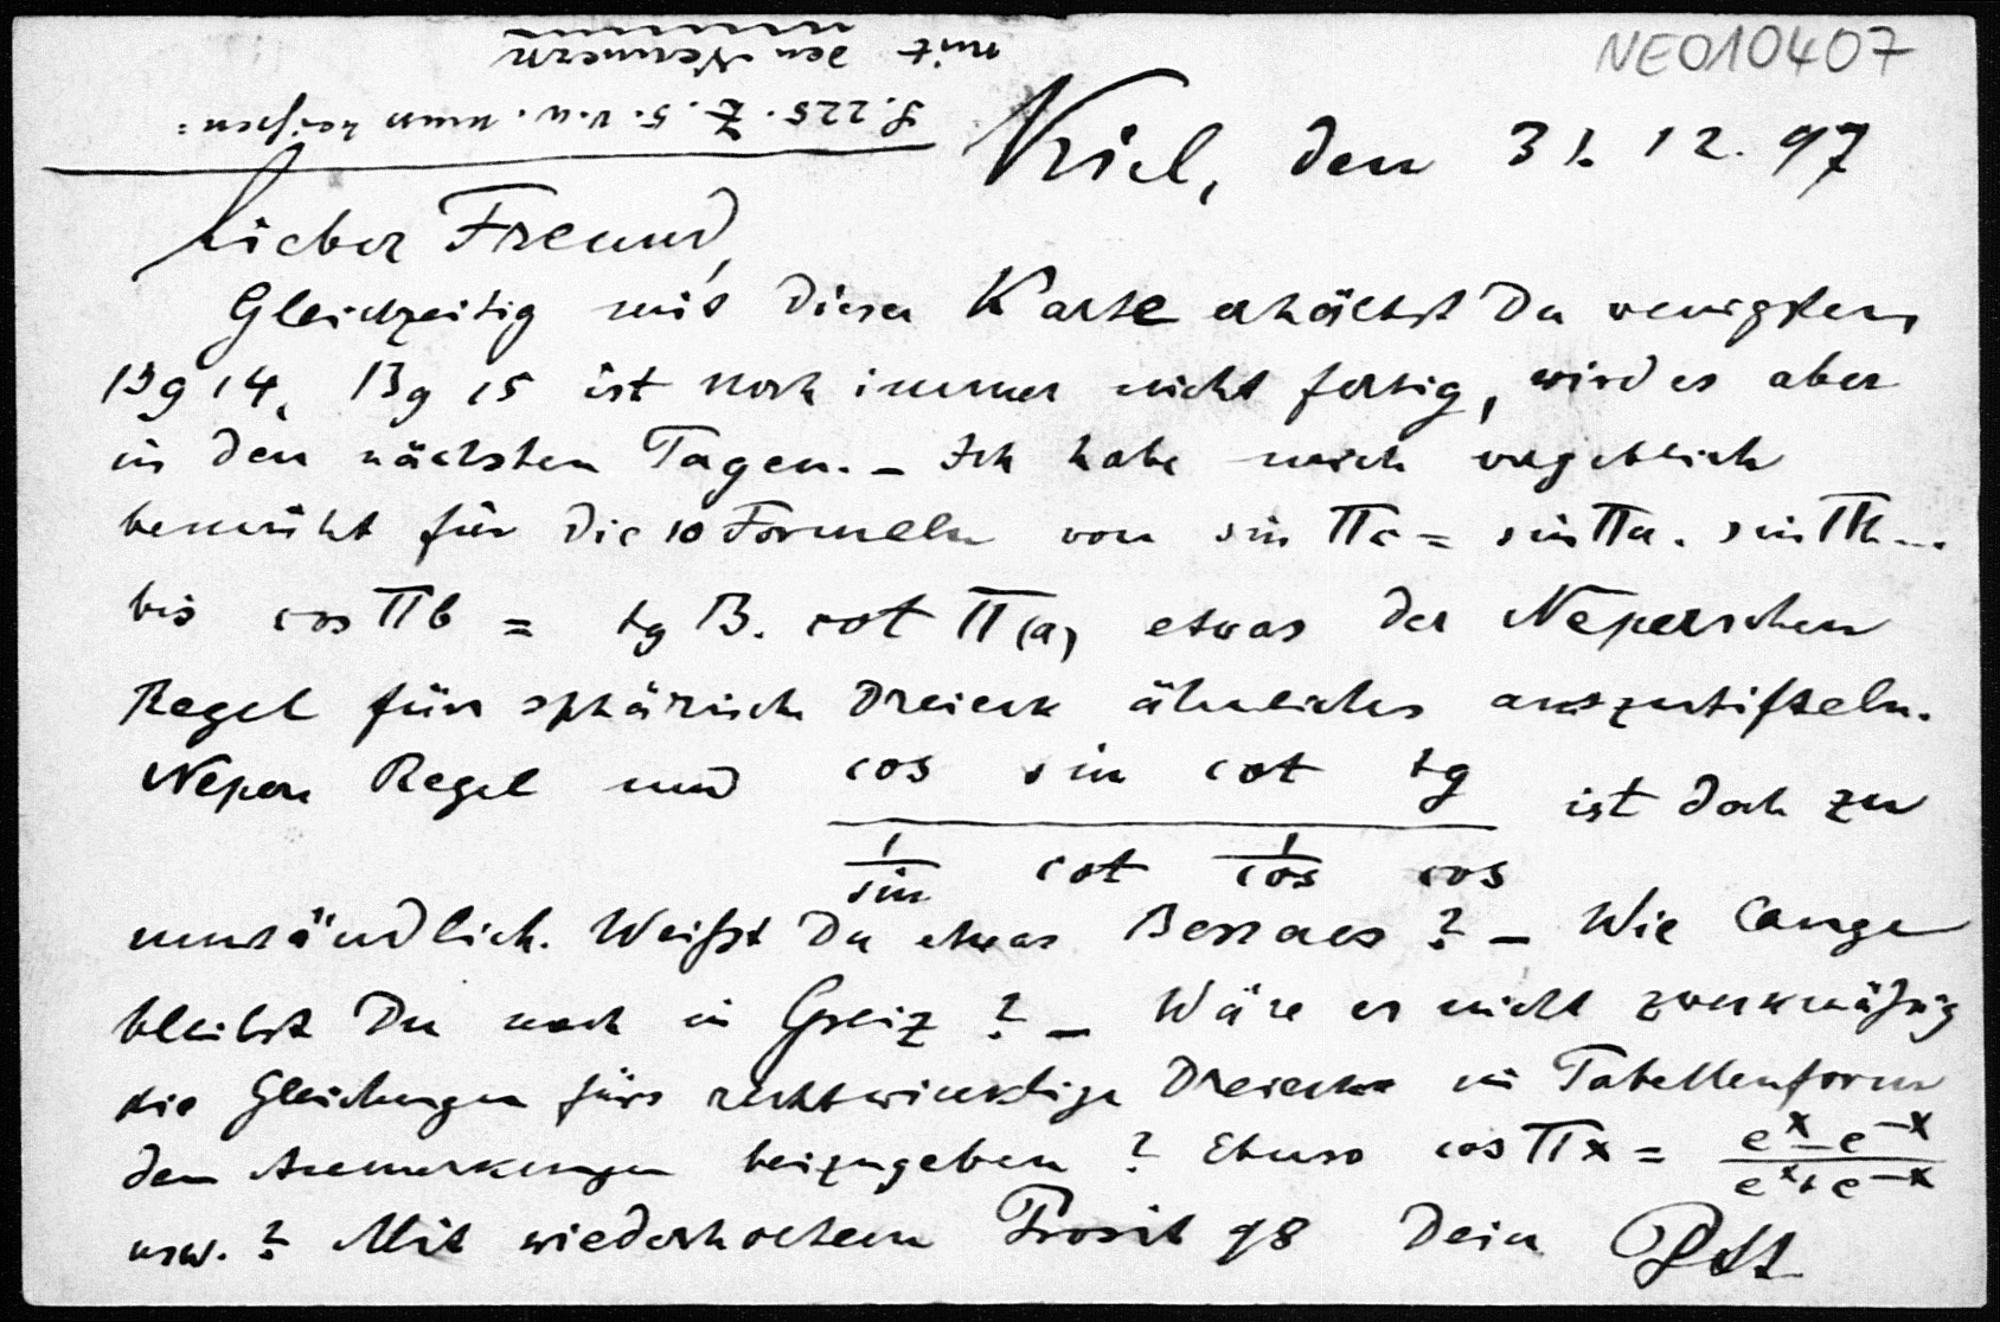 NEO10407
S. 225. Z. 5. v. u. muss heissen:
mit den Nennern
Kiel, den 31. 12. 97
Lieber Freund,
Gleichzeitig mit dieser Karte erhältst Du wenigstens
Bg 14, Bg 15 ist noch immer nicht fertig, wird es aber
in den nächsten Tagen. – Ich habe mich vergeblich
bemüht für die 10 Formeln von sin Πc = sin Πa . sin Πb ...
bis cos Πb = tg B. cot Π(a) etwas der Neperschen
Regel fürs sphärische Dreieck ähnliches auszutifteln.
Nepers Regel und cos sin cot tg ist doch zu
1/sin cot 1/cos cos
umständlich. Weißt Du etwas Besseres? – Wie lange
bleibst Du noch in Greiz? – Wäre es nicht zweckmäßig
die Gleichungen fürs rechtwinklige Dreieck in Tabellenform
den Anmerkungen beizugeben? Ebenso cos Πx = (e^x – e^–x)/(e^x + e^–x)
usw.? Mit wiederholtem Prosit 98 Dein